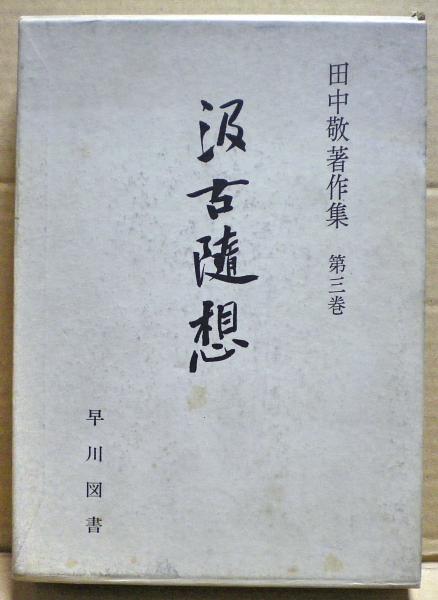 田中敬著作集 第三巻
汲古隨想
早川図書